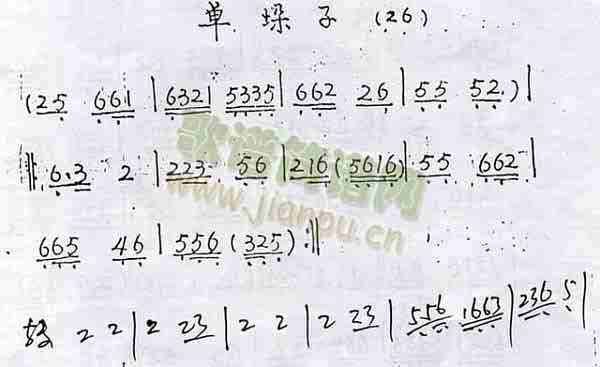 单 垛 子 (26)
(25 661 | 6321 5335 | 662 26 | 55 52.) |
‖: 6.3 2 | 223 56 | 216 (5616) | 55 662 |
665 46 | 556 (325) :‖
2 2 | 2 23 | 2 2 | 2 23 | 556 1663 | 236 5 |
www.jianpu.cn